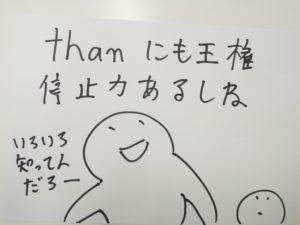 thanにも王権
停止力あるしね
いろいろ
知ってん
だろー